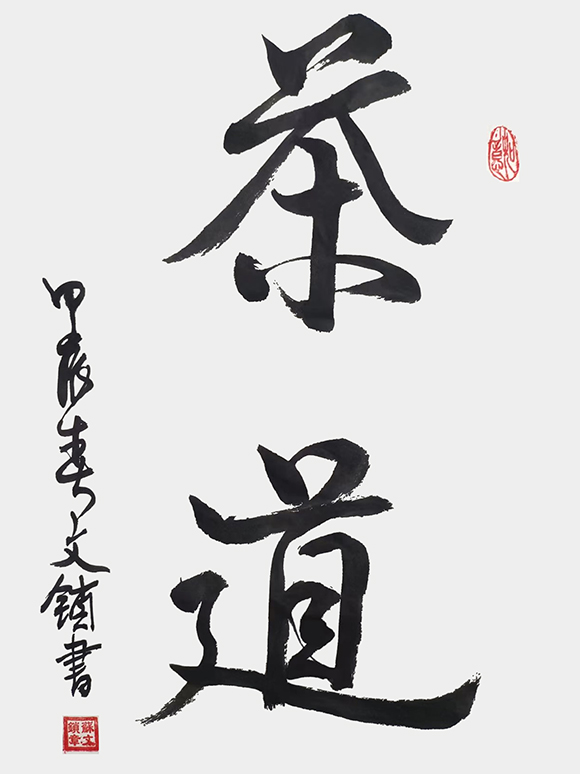 茶道
甲辰春文鎖書
蘇文鎖章